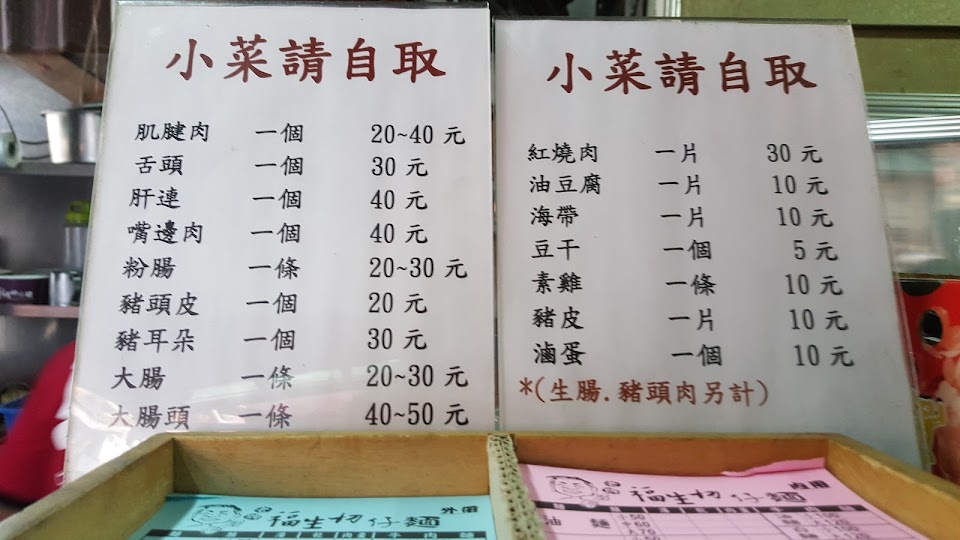 小菜請自取
肌腱肉 一個 20~40 元
舌頭 一個 30 元
肝連 一個 40 元
嘴邊肉 一個 40 元
粉腸 一條 20~30 元
豬頭皮 一個 20 元
豬耳朵 一個 30 元
大腸 一條 20~30 元
大腸頭 一條 40~50 元
小菜請自取
紅燒肉 一片 30 元
油豆腐 一片 10 元
海帶 一片 10 元
豆干 一個 5 元
素雞 一條 10 元
豬皮 一片 10 元
滷蛋 一個 10 元
*(生腸.豬頭肉另計)
福生切仔麵 外帶
福生切仔麵 內用
油麵